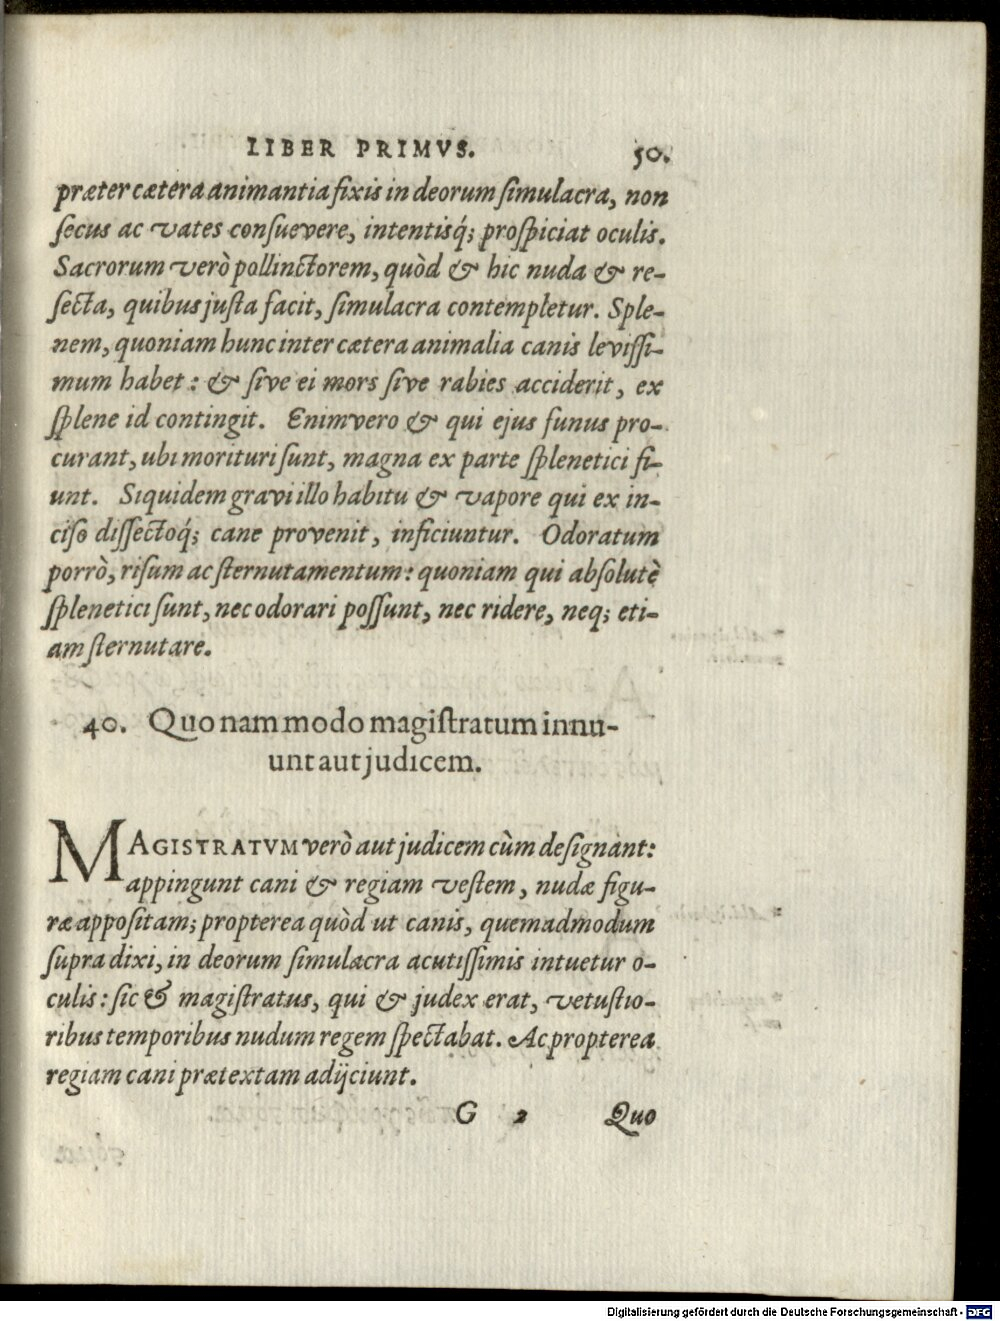 LIBER PRIMVS. 50.
præter cætera animantia fixis in deorum ſimulacra, non
ſecus ac vates conſuevere, intentisq́; proſpiciat oculis.
Sacrorum verò pollinctorem, quòd & hic nuda & re-
ſecta, quibus juſta facit, ſimulacra contempletur. Sple-
nem, quoniam hunc inter cætera animalia canis leviſſi-
mum habet: & ſive ei mors ſive rabies acciderit, ex
ſplene id contingit. Enimvero & qui ejus funus pro-
curant, ubi morituri ſunt, magna ex parte ſplenetici fi-
unt. Siquidem gravi illo habitu & vapore qui ex in-
ciſo diſſectoq́; cane provenit, inficiuntur. Odoratum
porrò, riſum ac ſternutamentum: quoniam qui abſolutè
ſplenetici ſunt, nec odorari poſſunt, nec ridere, neq; eti-
am ſternutare.
40. Quo nam modo magiſtratum innu-
unt aut judicem.
MAGISTRATVM verò aut judicem cùm deſignant:
appingunt cani & regiam veſtem, nudæ figu-
ræ appoſitam; propterea quòd ut canis, quemadmodum
ſupra dixi, in deorum ſimulacra acutiſſimis intuetur o-
culis: ſic & magiſtratus, qui & judex erat, vetuſtio-
ribus temporibus nudum regem ſpectabat. Ac propterea
regiam cani prætextam adijciunt.
G 2 Quo
Digitalisierung gefördert durch die Deutsche Forschungsgemeinschaft - DFG